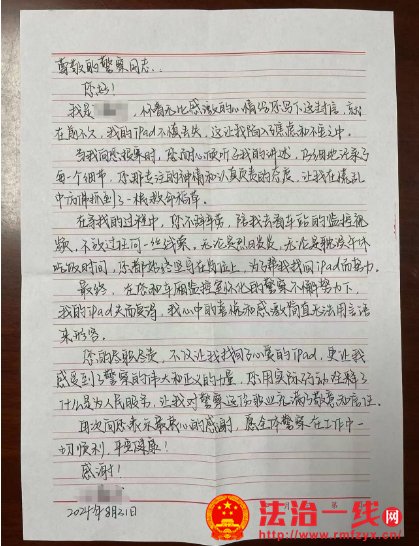 尊敬的警察同志：
您好！
我是 怀着无比感激的心情给您写下这封信，就
在前不久，我的iPad不慎丢失，这让我陷入了焦虑和不安之中。
当我向您报案时，您耐心倾听了我的讲述，仔细地记录了
每一个细节，您那专注的神情和认真负责的态度，让我在慌乱
中仿佛抓到了一根救命稻草。
在寻找的过程中，您不辞辛劳，陪我去看车站的监控视
频，不放过任何一丝线索，无论是烈日炎炎，无论是
吃饭时间，您都始终坚守在岗位上，为了帮我找回iPad而努力。
最终，在您和车厢监控 的警察不懈努力下，
我的iPad失而复得，我心中的喜悦和感激简直无法用言语
来形容。
您的尽职尽责，不仅让我找回了心爱的iPad，更让我
感受到了警察的伟大和正义的力量，您用实际行动诠释了
什么是为人民服务，让我对警察这份职业充满了敬意和信任。
再次向您表示最衷心的感谢，愿全体警察在工作中一
切顺利，平安健康！
感谢！
2024年8月21日
月 第
法治一线网
www.rmfzyx.com